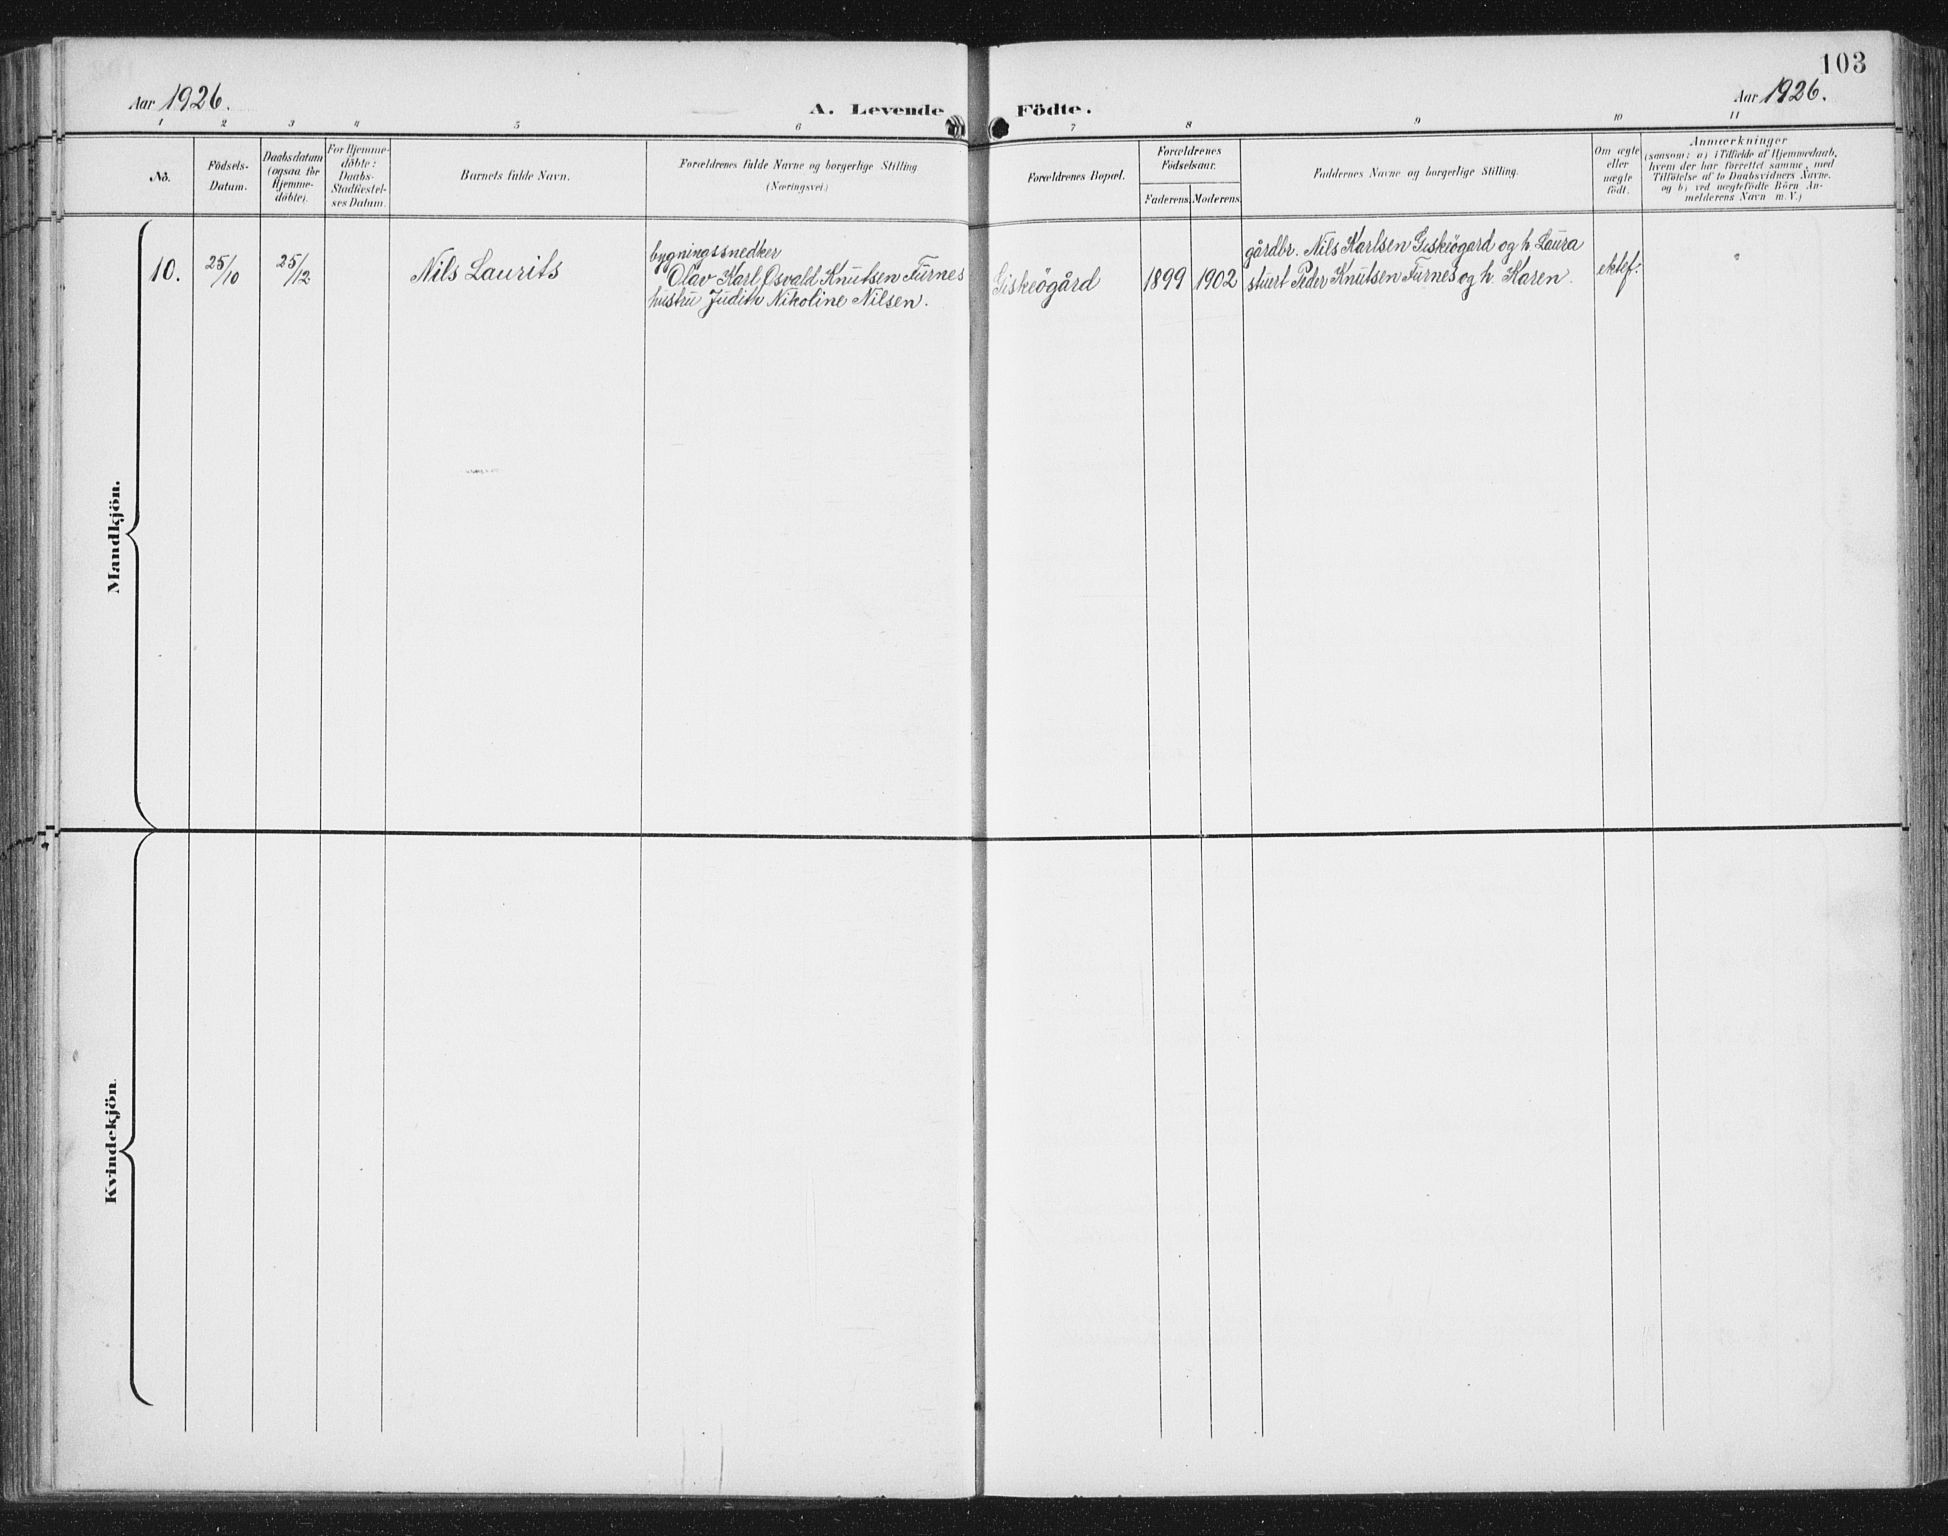 103
Aar 1926.
A. Levende Födte.
Aar 1926.
1 2 3 4 5 6 7 8 9 10 11
No.
Födsels-
Datum.
Daabsdatum
(ogsaa for
Hjemme-
döbte).
For Hjemme-
döbte:
Daabs-
Stadfæstel-
ses Datum.
Barnets fulde Navn.
Forældrenes fulde Navne og borgerlige Stilling
(Næringsvei.)
Forældrenes Bopæl.
Forældrenes
Födselsaar.
Faderens.
Moderens.
Faddernes Navne og borgerlige Stilling.
Om ægte
eller
uægte
födt.
Anmærkninger
(saasom: a) i Tilfælde af Hjemmedaab,
hvem der har forrettet samme, med
Tilföielse af to Daabsvidners Navne,
og b) ved uægtefödte Börn An-
melderens Navn m. V.)
Mandkjön.
10.
25/10
25/12
Nils Laurits
bygningssnedker
Olav Karl Osvald Knutsen Furnes
hustru Judith Nikoline Nilsen.
Giskeögård
1899
1902
gårdbr. Nils Karlsen Giskeögard og h. Laura
stuert Peder Knutsen Furnes og h. Karen.
ektef.
"
Kvindekjön.